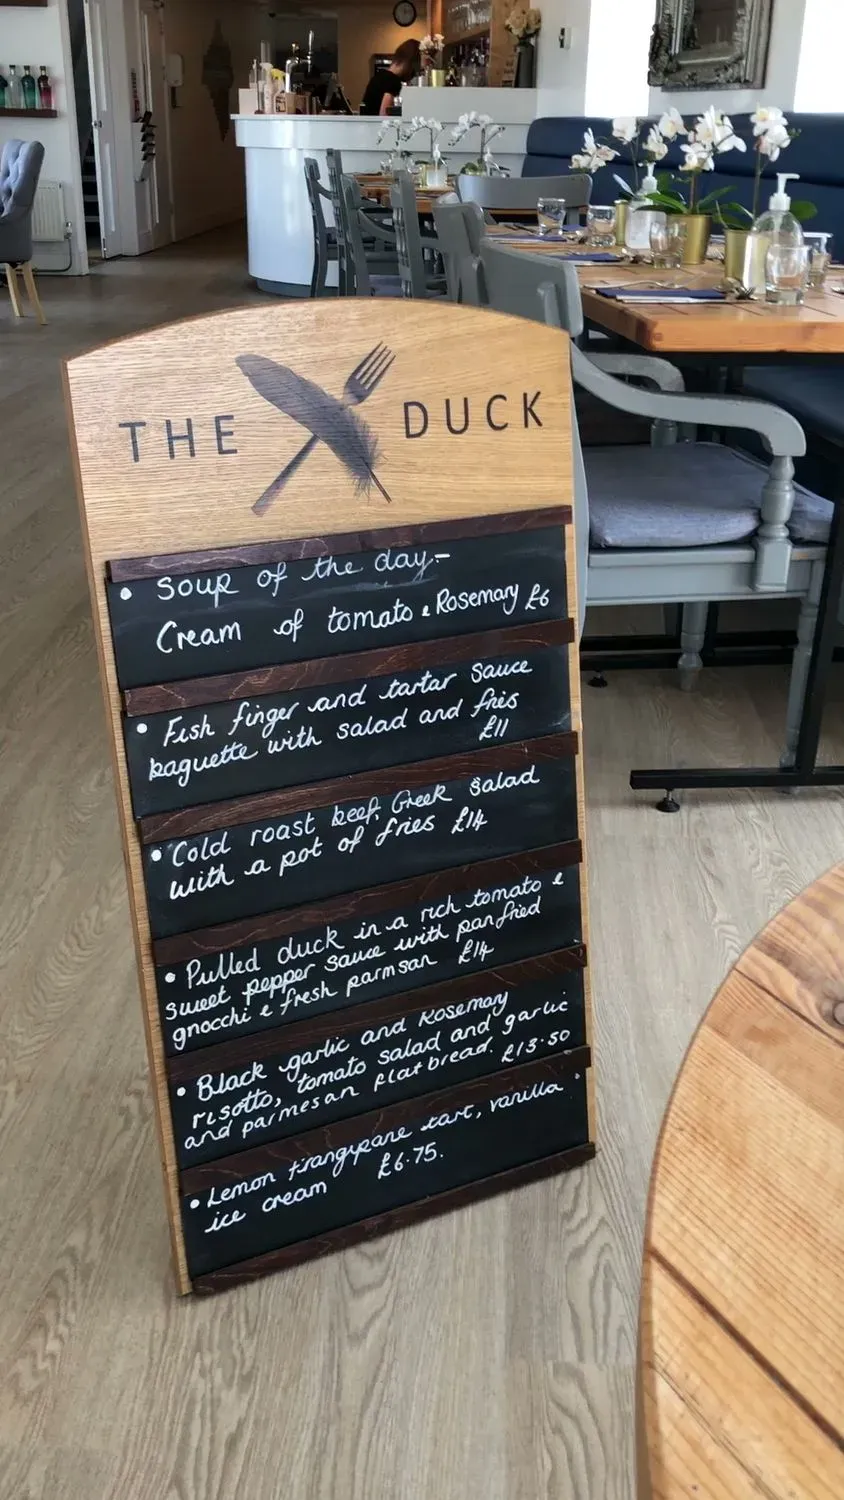 THE DUCK
• Soup of the day:-
Cream of tomato & Rosemary £6
• Fish finger and tartar sauce
baguette with salad and fries
£11
• Cold roast beef, Greek salad
with a pot of fries £14
• Pulled duck in a rich tomato &
sweet pepper sauce with panfried
gnocchi & fresh parmsan £14
• Black garlic and Rosemary
risotto, tomato salad and garlic
and parmesan flatbread. £13.50
• Lemon frangipane tart, vanilla
ice cream £6.75.